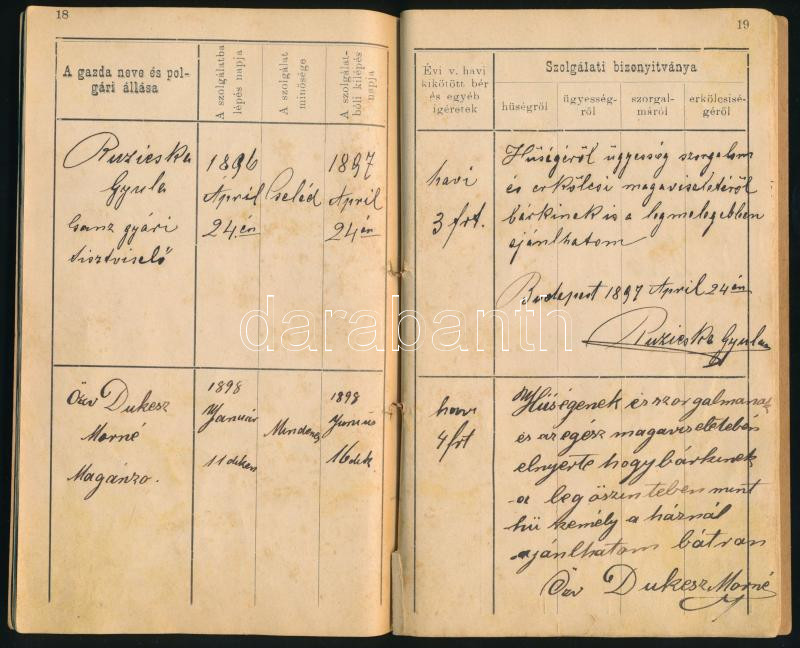 18
A gazda neve és pol-
gári állása
A szolgálatba
lépés napja
A szolgálat
minősége
A szolgálat-
bóli kilépés
napja
Ruzicska
Gyula
Ganz gyári
tisztviselő
1896
April
24.én
Cseléd
1897
April
24én
Özv Dukesz
Morné
Magánzo.
1898
Január
11diken
Mindenes
1898
Junius
16dik
19
Évi v. havi
kikötött bér
és egyéb
igéretek
Szolgálati bizonyitványa
hűségről
ügyesség-
ről
szorgal-
máról
erkölcsisé-
géről
havi
3 frt.
Hűségéről ügyesség szorgalom
és erkölcsi magaviseletéről
bárkinek is a legmelegebben
ajánlhatom
Budapest 1897 April 24én
Ruzicska Gyula
havi
4 frt
Hűségének és szorgalmanak
és az egész magaviseletében
elnyerte hogy bárkinek
a leg öszintében mint
hü személy a háznál
ajánlhatom bátran
Özv Dukesz Morné
darabanth